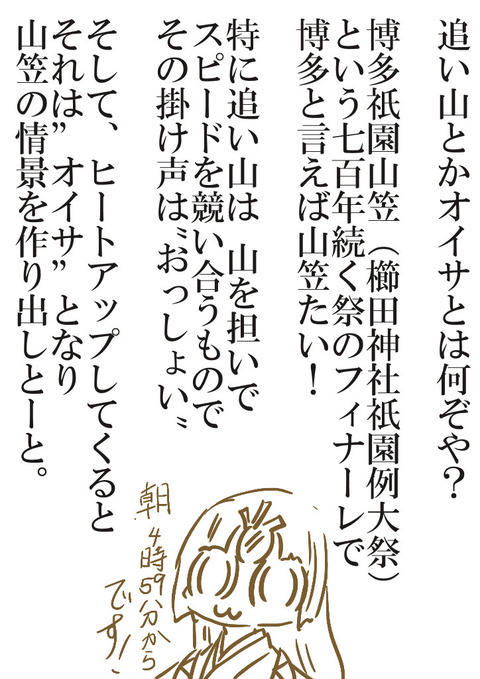 追い山とかオイサとは何ぞや?
博多祇園山笠(櫛田神社祇園例大祭)
という七百年続く祭のフィナーレで
博多と言えば山笠たい!
特に追い山は 山を担いで
スピードを競い合うもので
その掛け声は"おっしょい"
そして、ヒートアップしてくると
それは"オイサ"となり
山笠の情景を作り出しとーと。
朝4時59分から
です!